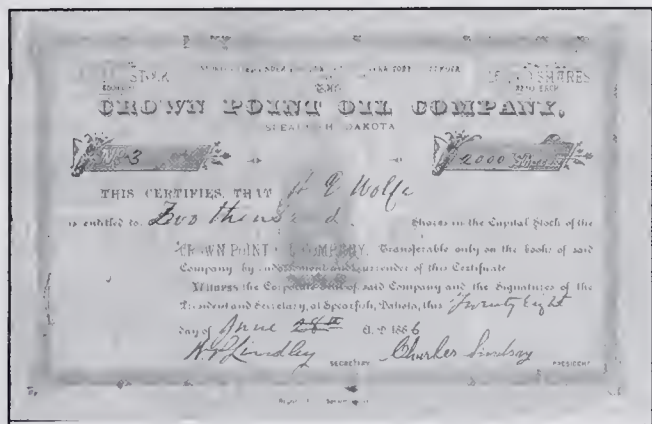 STOCK SHARES
EACH
CROWN POINT OIL COMPANY,
SPEARFISH DAKOTA
No 3 2000 Shares
THIS CERTIFIES, THAT Wolfe
is entitled to Two thousand Shares in the Capital Stock of the
CROWN POINT OIL COMPANY, Transferable only on the books of said
Company by endorsement and surrender of this Certificate
Witness the Corporate Seal of said Company and the Signatures of the
President and Secretary, at Spearfish, Dakota, this Twenty Eight
day of June 28th A.D 1886
Lindley SECRETARY Charles Lindsay PRESIDENT